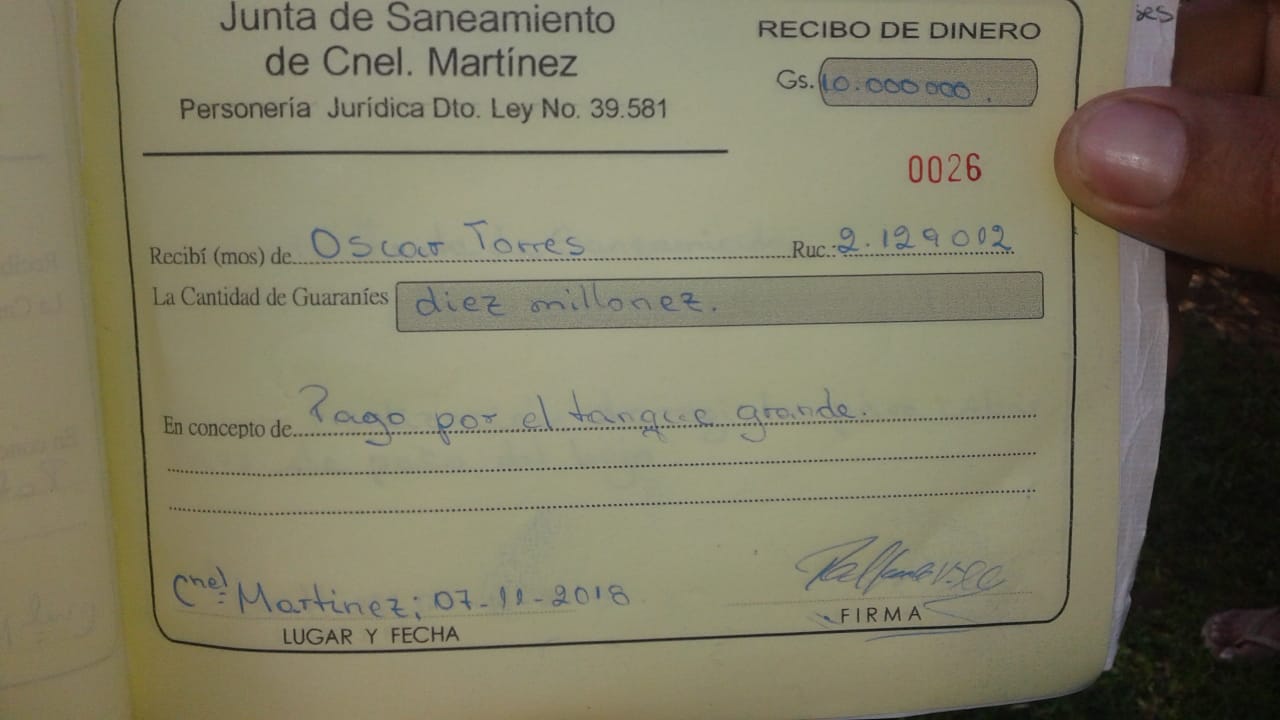 Junta de Saneamiento
de Cnel. Martínez
Personería Jurídica Dto. Ley No. 39.581
RECIBO DE DINERO
Gs. 10.000000.
0026
Recibí (mos) de Oscar Torres Ruc.: 2.129002
La Cantidad de Guaraníes diez millonez.
En concepto de Pago por el tanque grande.
Cnel Martinez; 07-11-2018
LUGAR Y FECHA
FIRMA